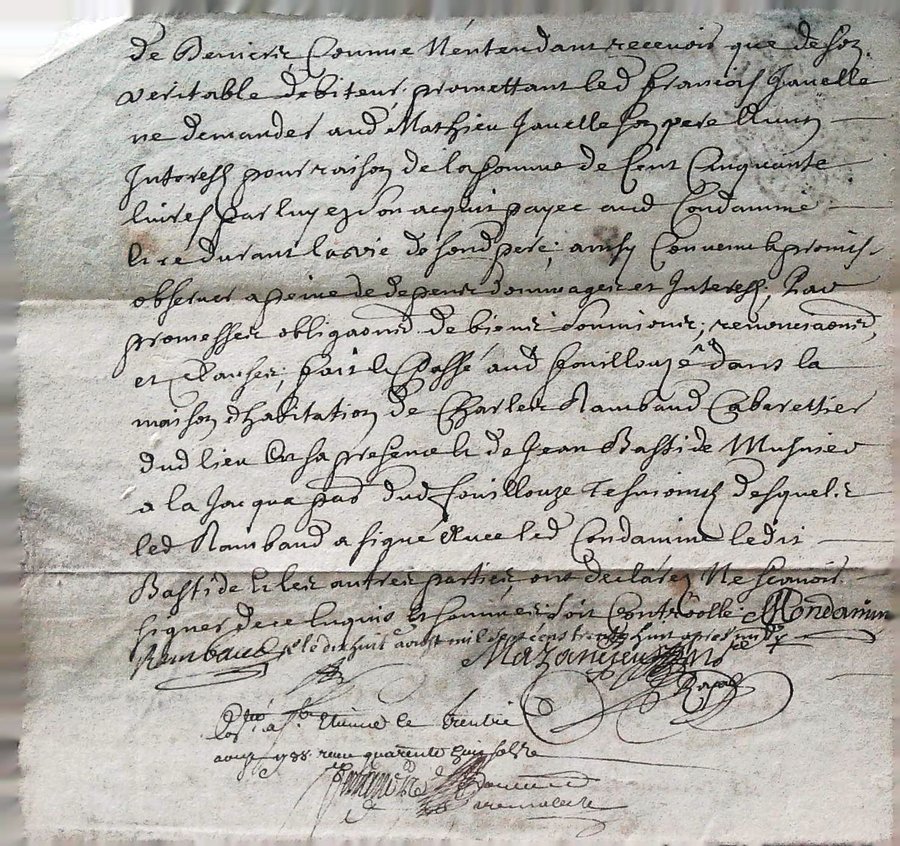 de deniers Comme N'entendant recevoir que de son
veritable debiteur, promettant led françois Javelle
ne demander aud Mathieu Javelle son pere Aucun
Interest pour raison de la somme de Cent Cinquante
livres par luy en son acquit payee aud Condamine
et ce durant la vie de sond pere; ainsy Convenu & promis
observer a peine de depens dommages et Interest; Par
promesses obligaons de biens soumions; renonciaons
et Clauses; fait & Passé aud fouillouze dans la
maison d'habitation de Charles Rambaud Cabarettier
dud lieu En sa presence & de Jean Bastide Musnier
a la Jacqua pad dud fouillouze Tesmoins desquels
led Rambaud a signé Avec led Condamine ledit
Bastide & les autres parties ont declaré Ne scavoir
signer de ce Enquis & sommes soit Controolle Condamin
Rambaud le dixhuit aoust mil sept cens trente huit apres midy
Mazancieu
Royal
Con a St. Etienne le trentie
aoust 1738 recu quarente huit sols